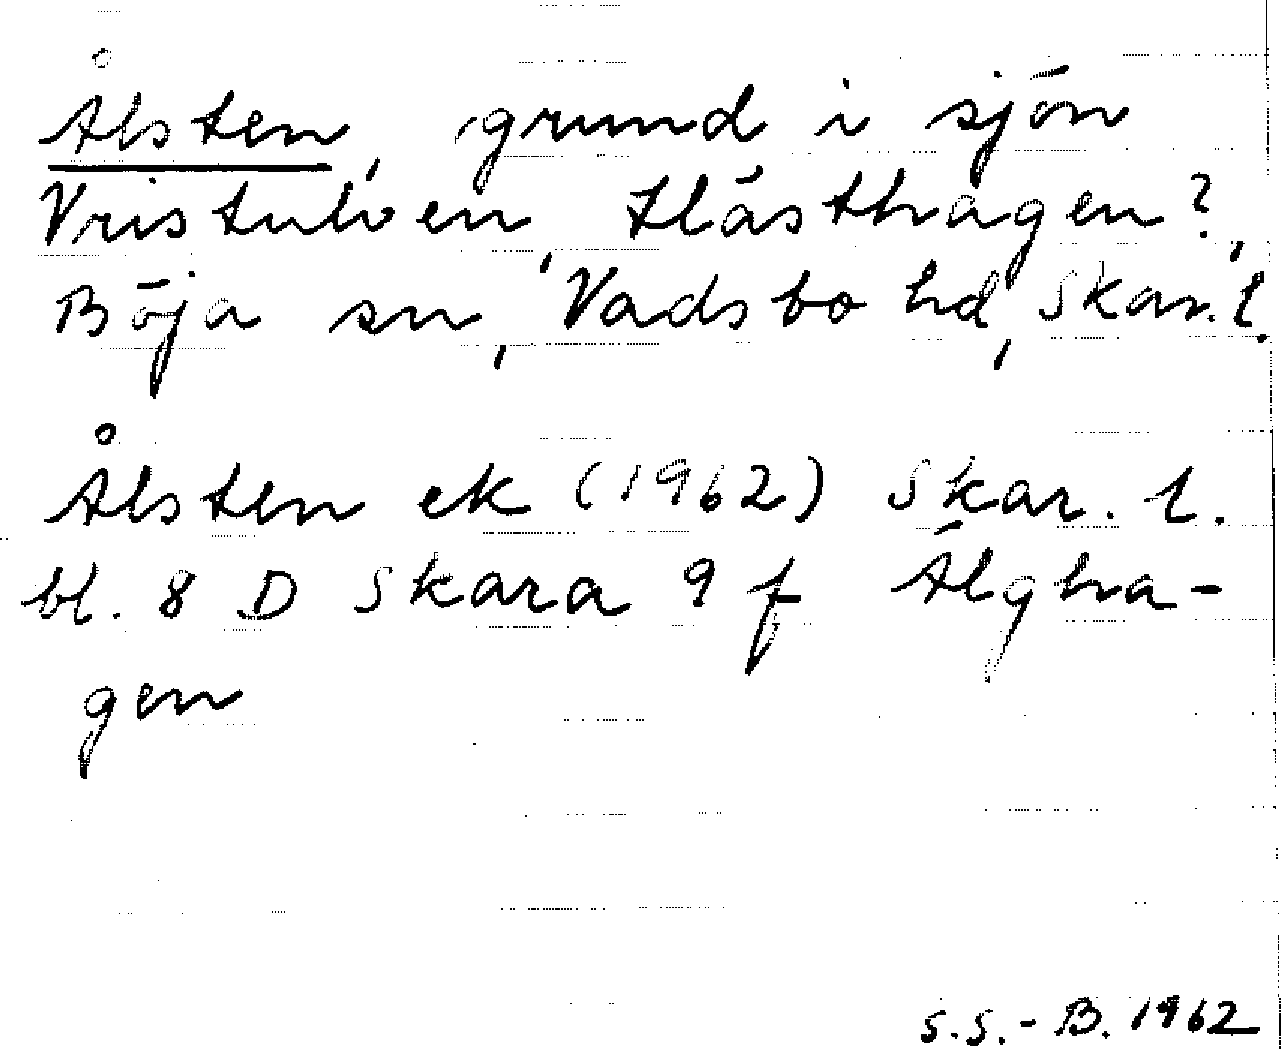 Ålsten, grund i sjön
Vristulven, Hästhagen?,
Böja sn, Vadsbo hd, Skar. l.
Ålsten ek (1962) Skar. l.
bl. 8 D Skara 9 f Älgha-
gen
S.S.-B. 1962